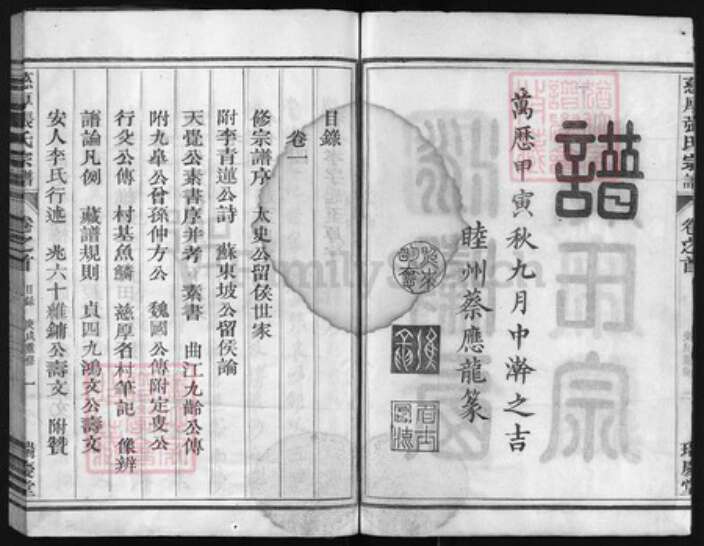 慈厚張氏宗譜 卷之首
瑞慶堂
譜
萬歷甲寅秋九月中澣之吉
睦州蔡應龍篆
目錄
卷一
修宗譜序 太史公留侯世家
附李青蓮公詩 蘇東坡公留侯論
天覺公素書序并考 素書 曲江九齡公傳
附九皋公曾孫仲方公 魏國公傳附定叟公
行父公傳 村基魚鱗 慈厚名村筆記 像辨
譜論凡例 藏譜規則 貞四九鴻文公壽文
安人李氏行述 兆六十維鏞公壽文 附贊
慈厚張氏宗譜 卷之首 目錄 一
瑞慶堂